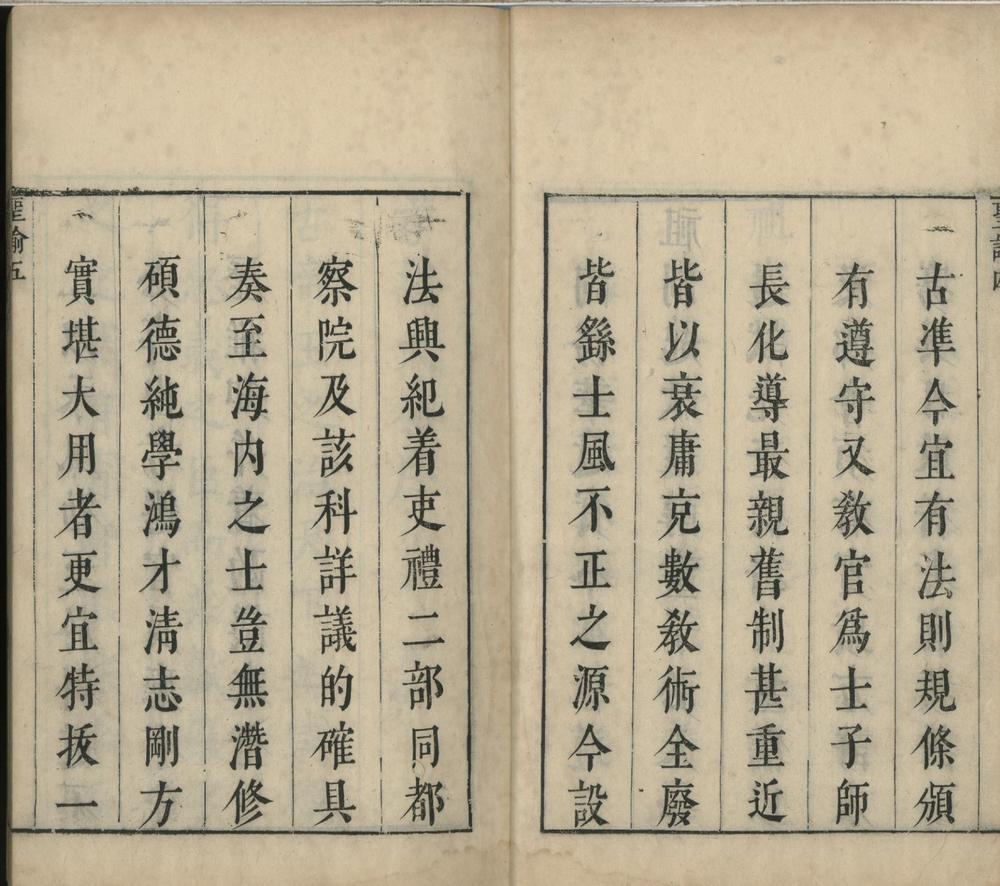 聖諭四
古準今宜有法則規條頒
有遵守又教官爲士子師
長化導最親舊制甚重近
皆以衰庸充數教術全廢
皆繇士風不正之源今設
法興紀着吏禮二部同都
察院及該科詳議的確具
奏至海内之士豈無潛修
碩德純學鴻才清志剛方
實堪大用者更宜特拔一
聖諭五